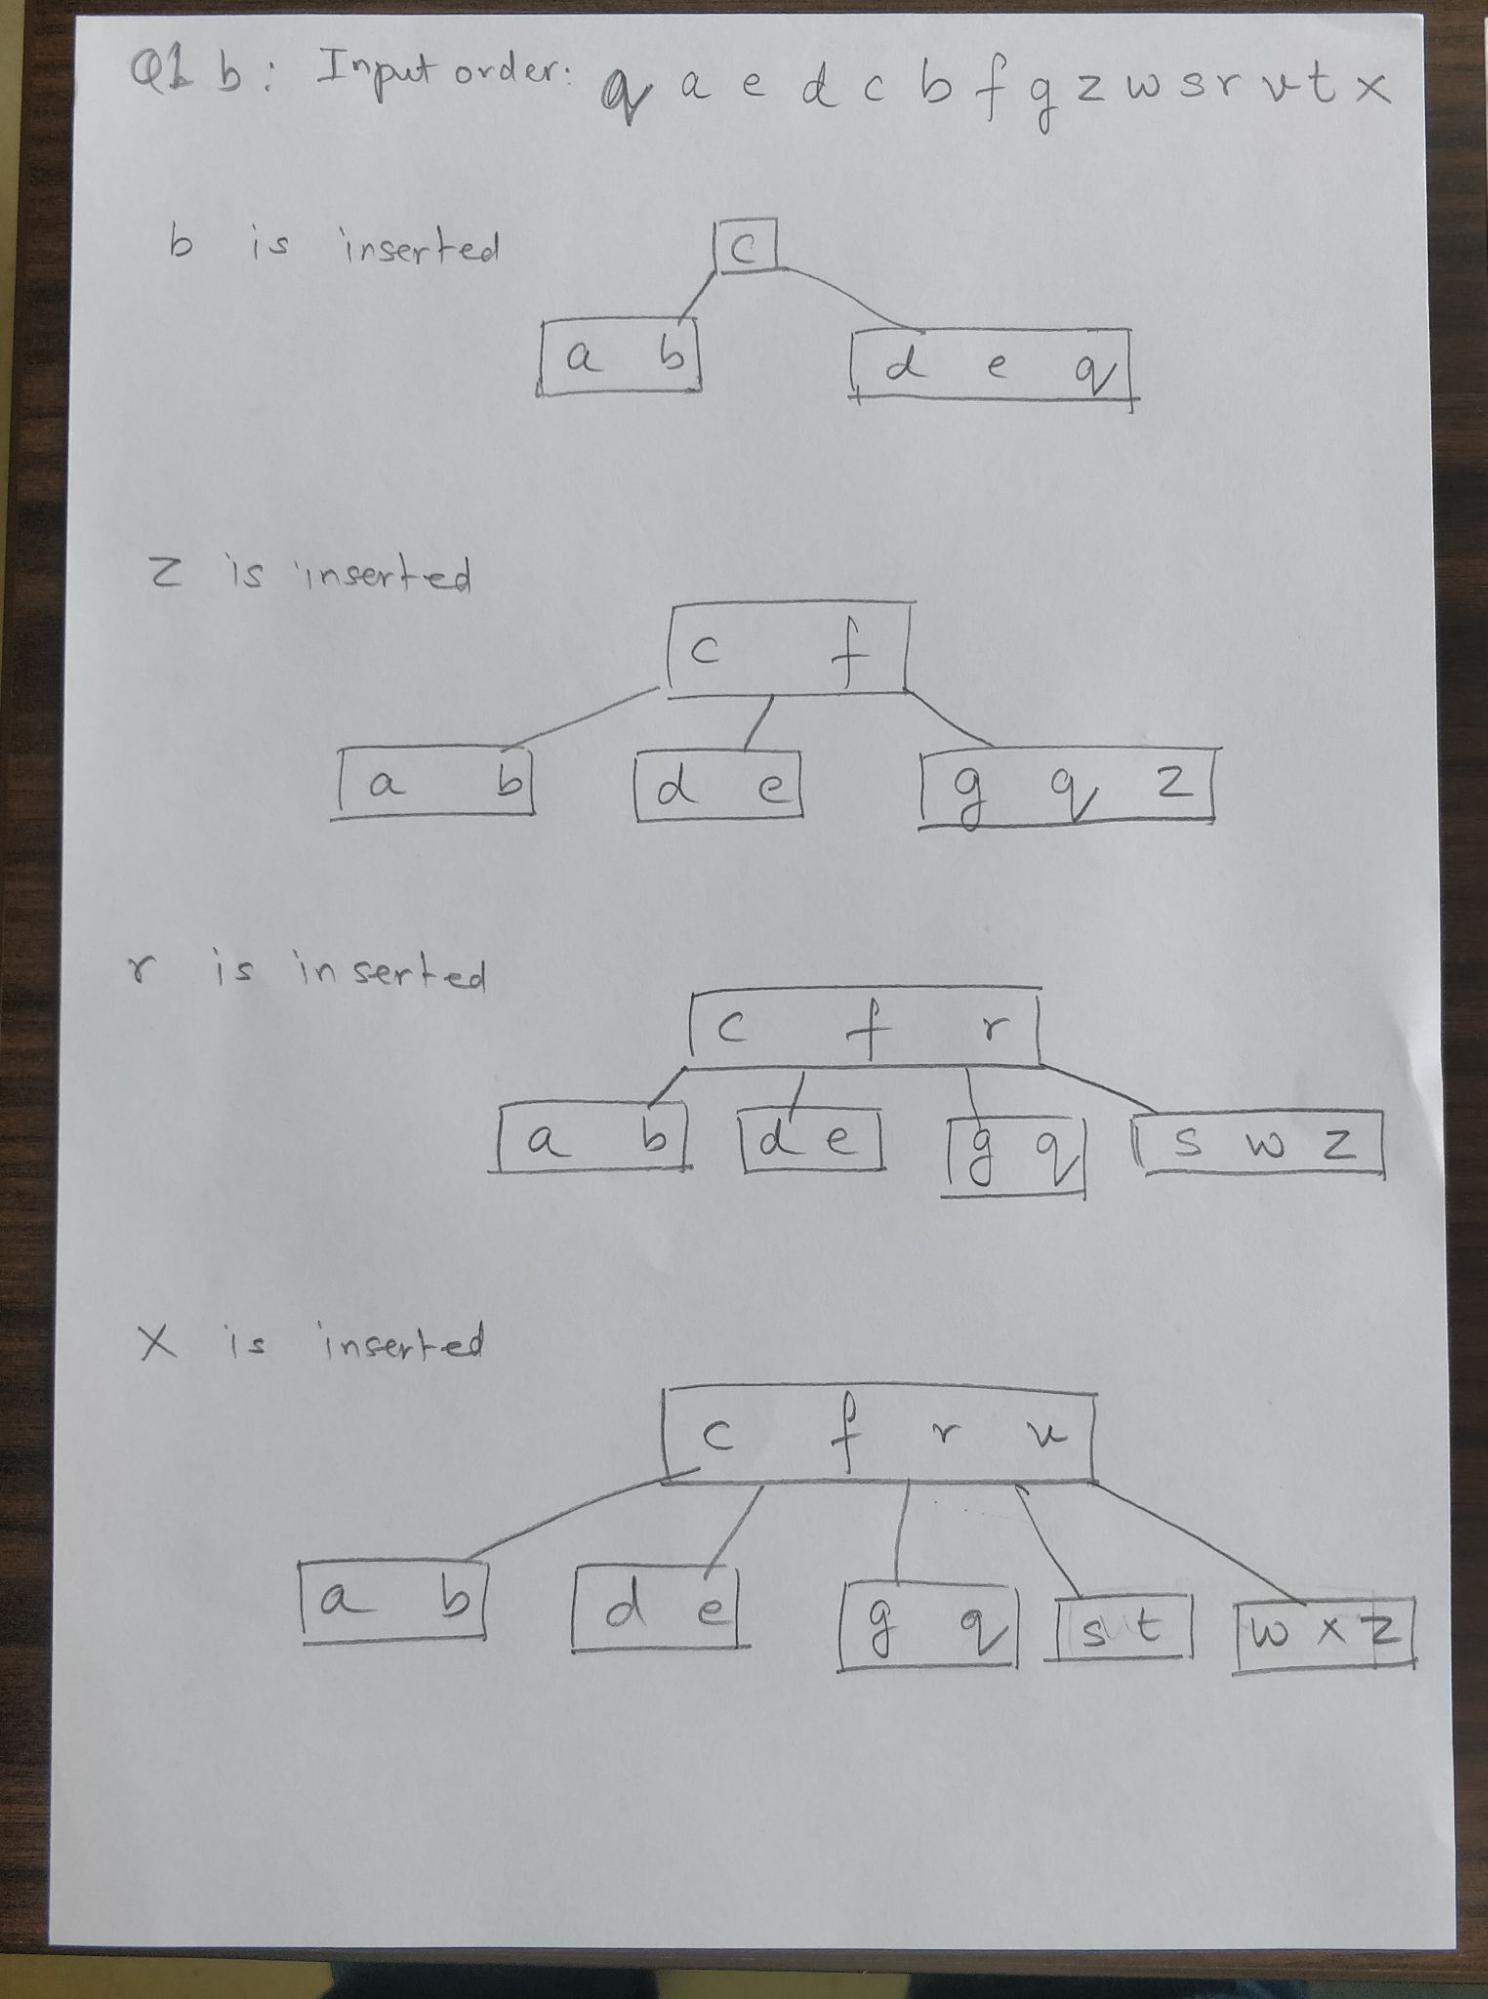 Q1 b: Input order: q a e d c b f g z w s r v t x
b is inserted
c
a b d e q
z is inserted
c f
a b d e g q z
r is inserted
c f r
a b d e g q s w z
x is inserted
c f r v
a b d e g q s t w x z